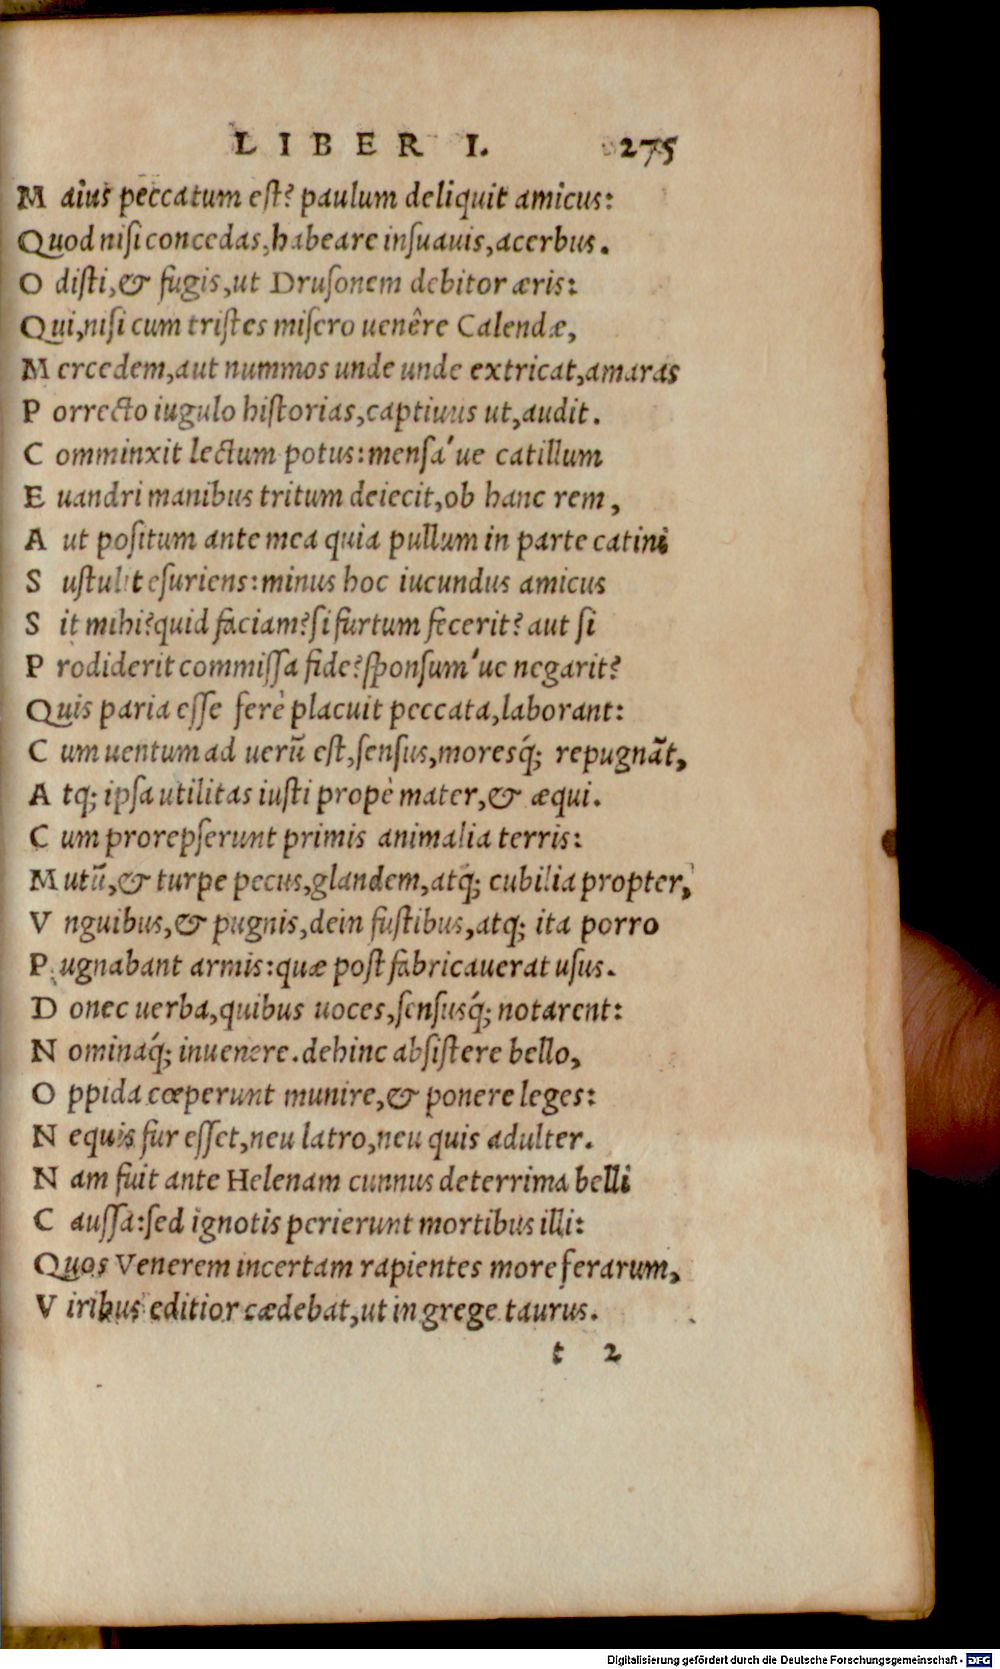 LIBER I. 275
Maius peccatum est? paulum deliquit amicus:
Quod nisi concedas, habeare insuauis, acerbus.
Odisti, & fugis, ut Drusonem debitor æris:
Qui, nisi cum tristes misero uenêre Calendæ,
Mercedem, aut nummos unde unde extricat, amaras
Porrecto iugulo historias, captiuus ut, audit.
Comminxit lectum potus: mensa'ue catillum
Euandri manibus tritum deiecit, ob hanc rem,
Aut positum ante mea quia pullum in parte catini
Sustulit esuriens: minus hoc iucundus amicus
Sit mihi? quid faciam? si furtum fecerit? aut si
Prodiderit commissa fide? sponsum'ue negarit?
Quis paria esse ferè placuit peccata, laborant:
Cum uentum ad uerũ est, sensus, moresq́; repugnãt,
Atq; ipsa utilitas iusti propè mater, & æqui.
Cum prorepserunt primis animalia terris:
Mutũ, & turpe pecus, glandem, atq́; cubilia propter,
Vnguibus, & pugnis, dein fustibus, atq; ita porro
Pugnabant armis: quæ post fabricauerat usus.
Donec uerba, quibus uoces, sensusq́; notarent:
Nominaq́; inuenere. dehinc absistere bello,
Oppida cœperunt munire, & ponere leges:
Nequis fur esset, neu latro, neu quis adulter.
Nam fuit ante Helenam cunnus deterrima belli
Caussa: sed ignotis perierunt mortibus illi:
Quos Venerem incertam rapientes more ferarum,
Viribus editior cædebat, ut in grege taurus.
t 2
Digitalisierung gefördert durch die Deutsche Forschungsgemeinschaft - DFG